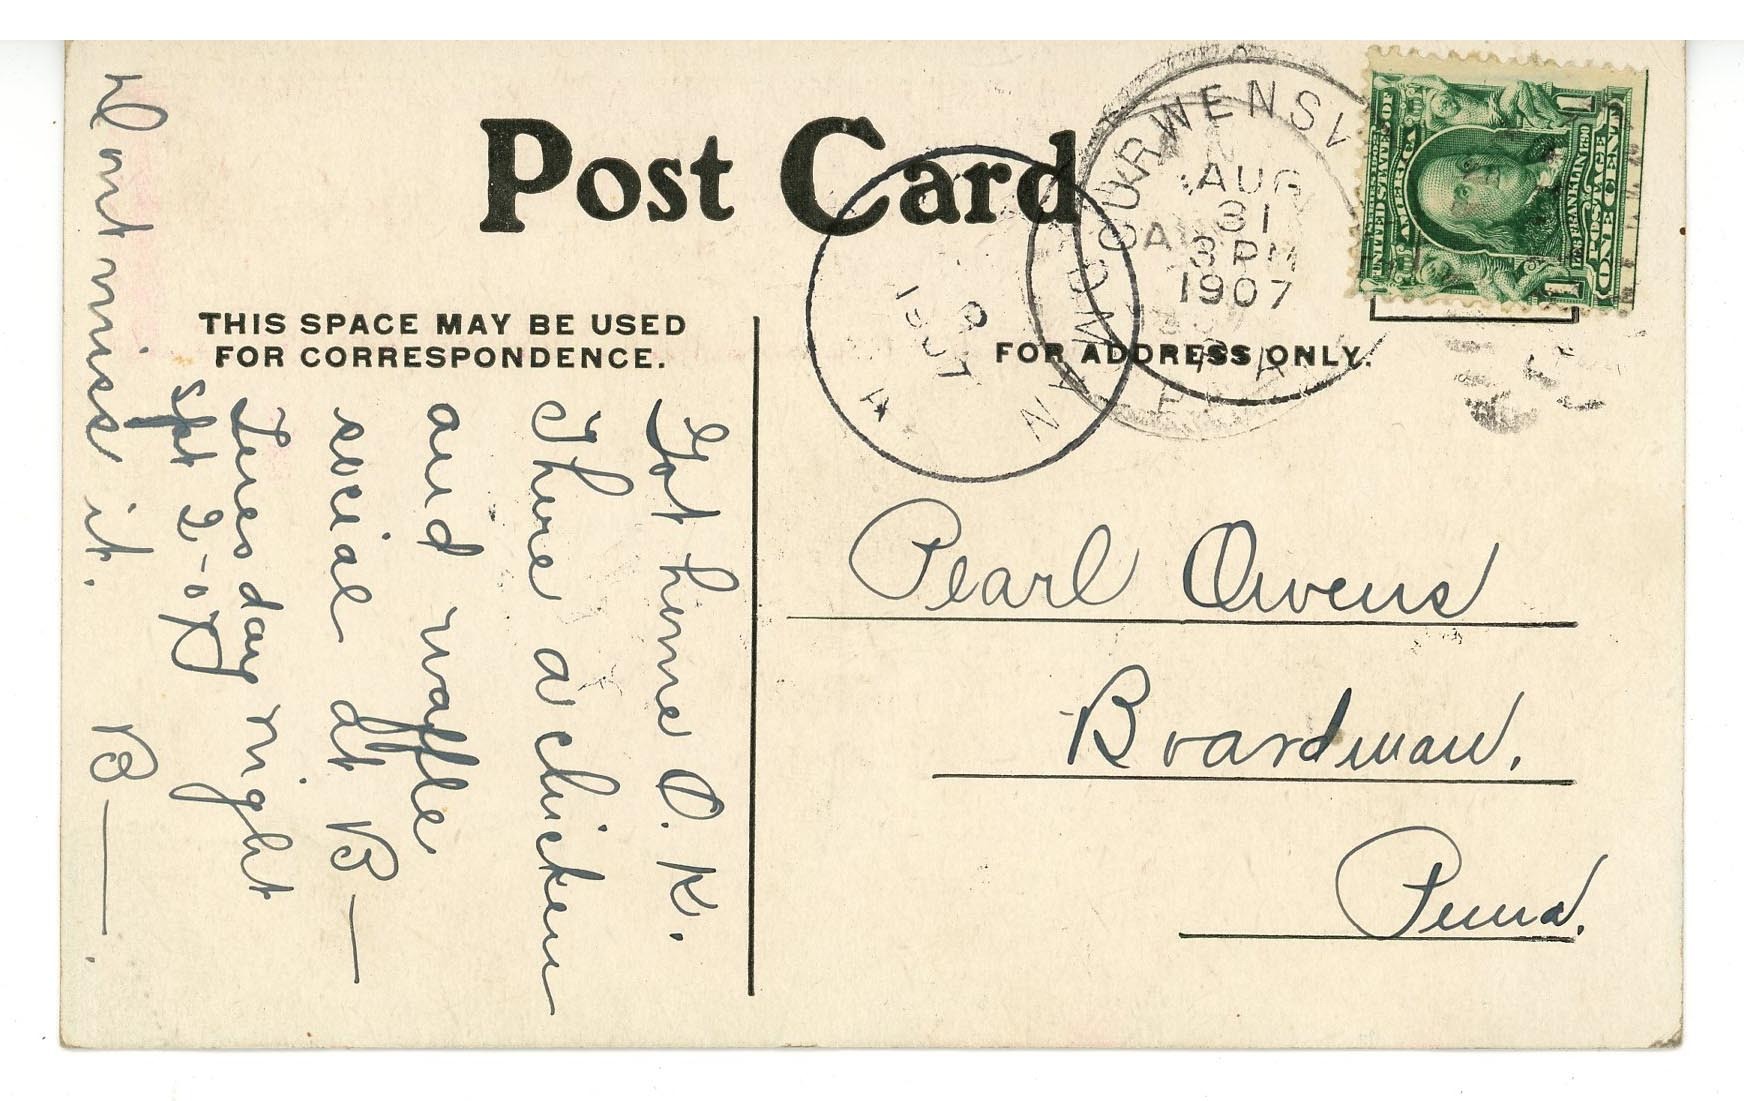 Post Card
THIS SPACE MAY BE USED
FOR CORRESPONDENCE.
FOR ADDRESS ONLY.
CURWENSV
AUG
31
3 PM
1907
PA
1907
UNITED STATES OF
AMERICA
FRANKLIN
POSTAGE
ONE CENT
Got home O.K.
There a chicken
and waffle
social at B—
Tuesday night
Spt 2-07
Dont miss it. B—.
Pearl Owens
Boardman.
Penna.